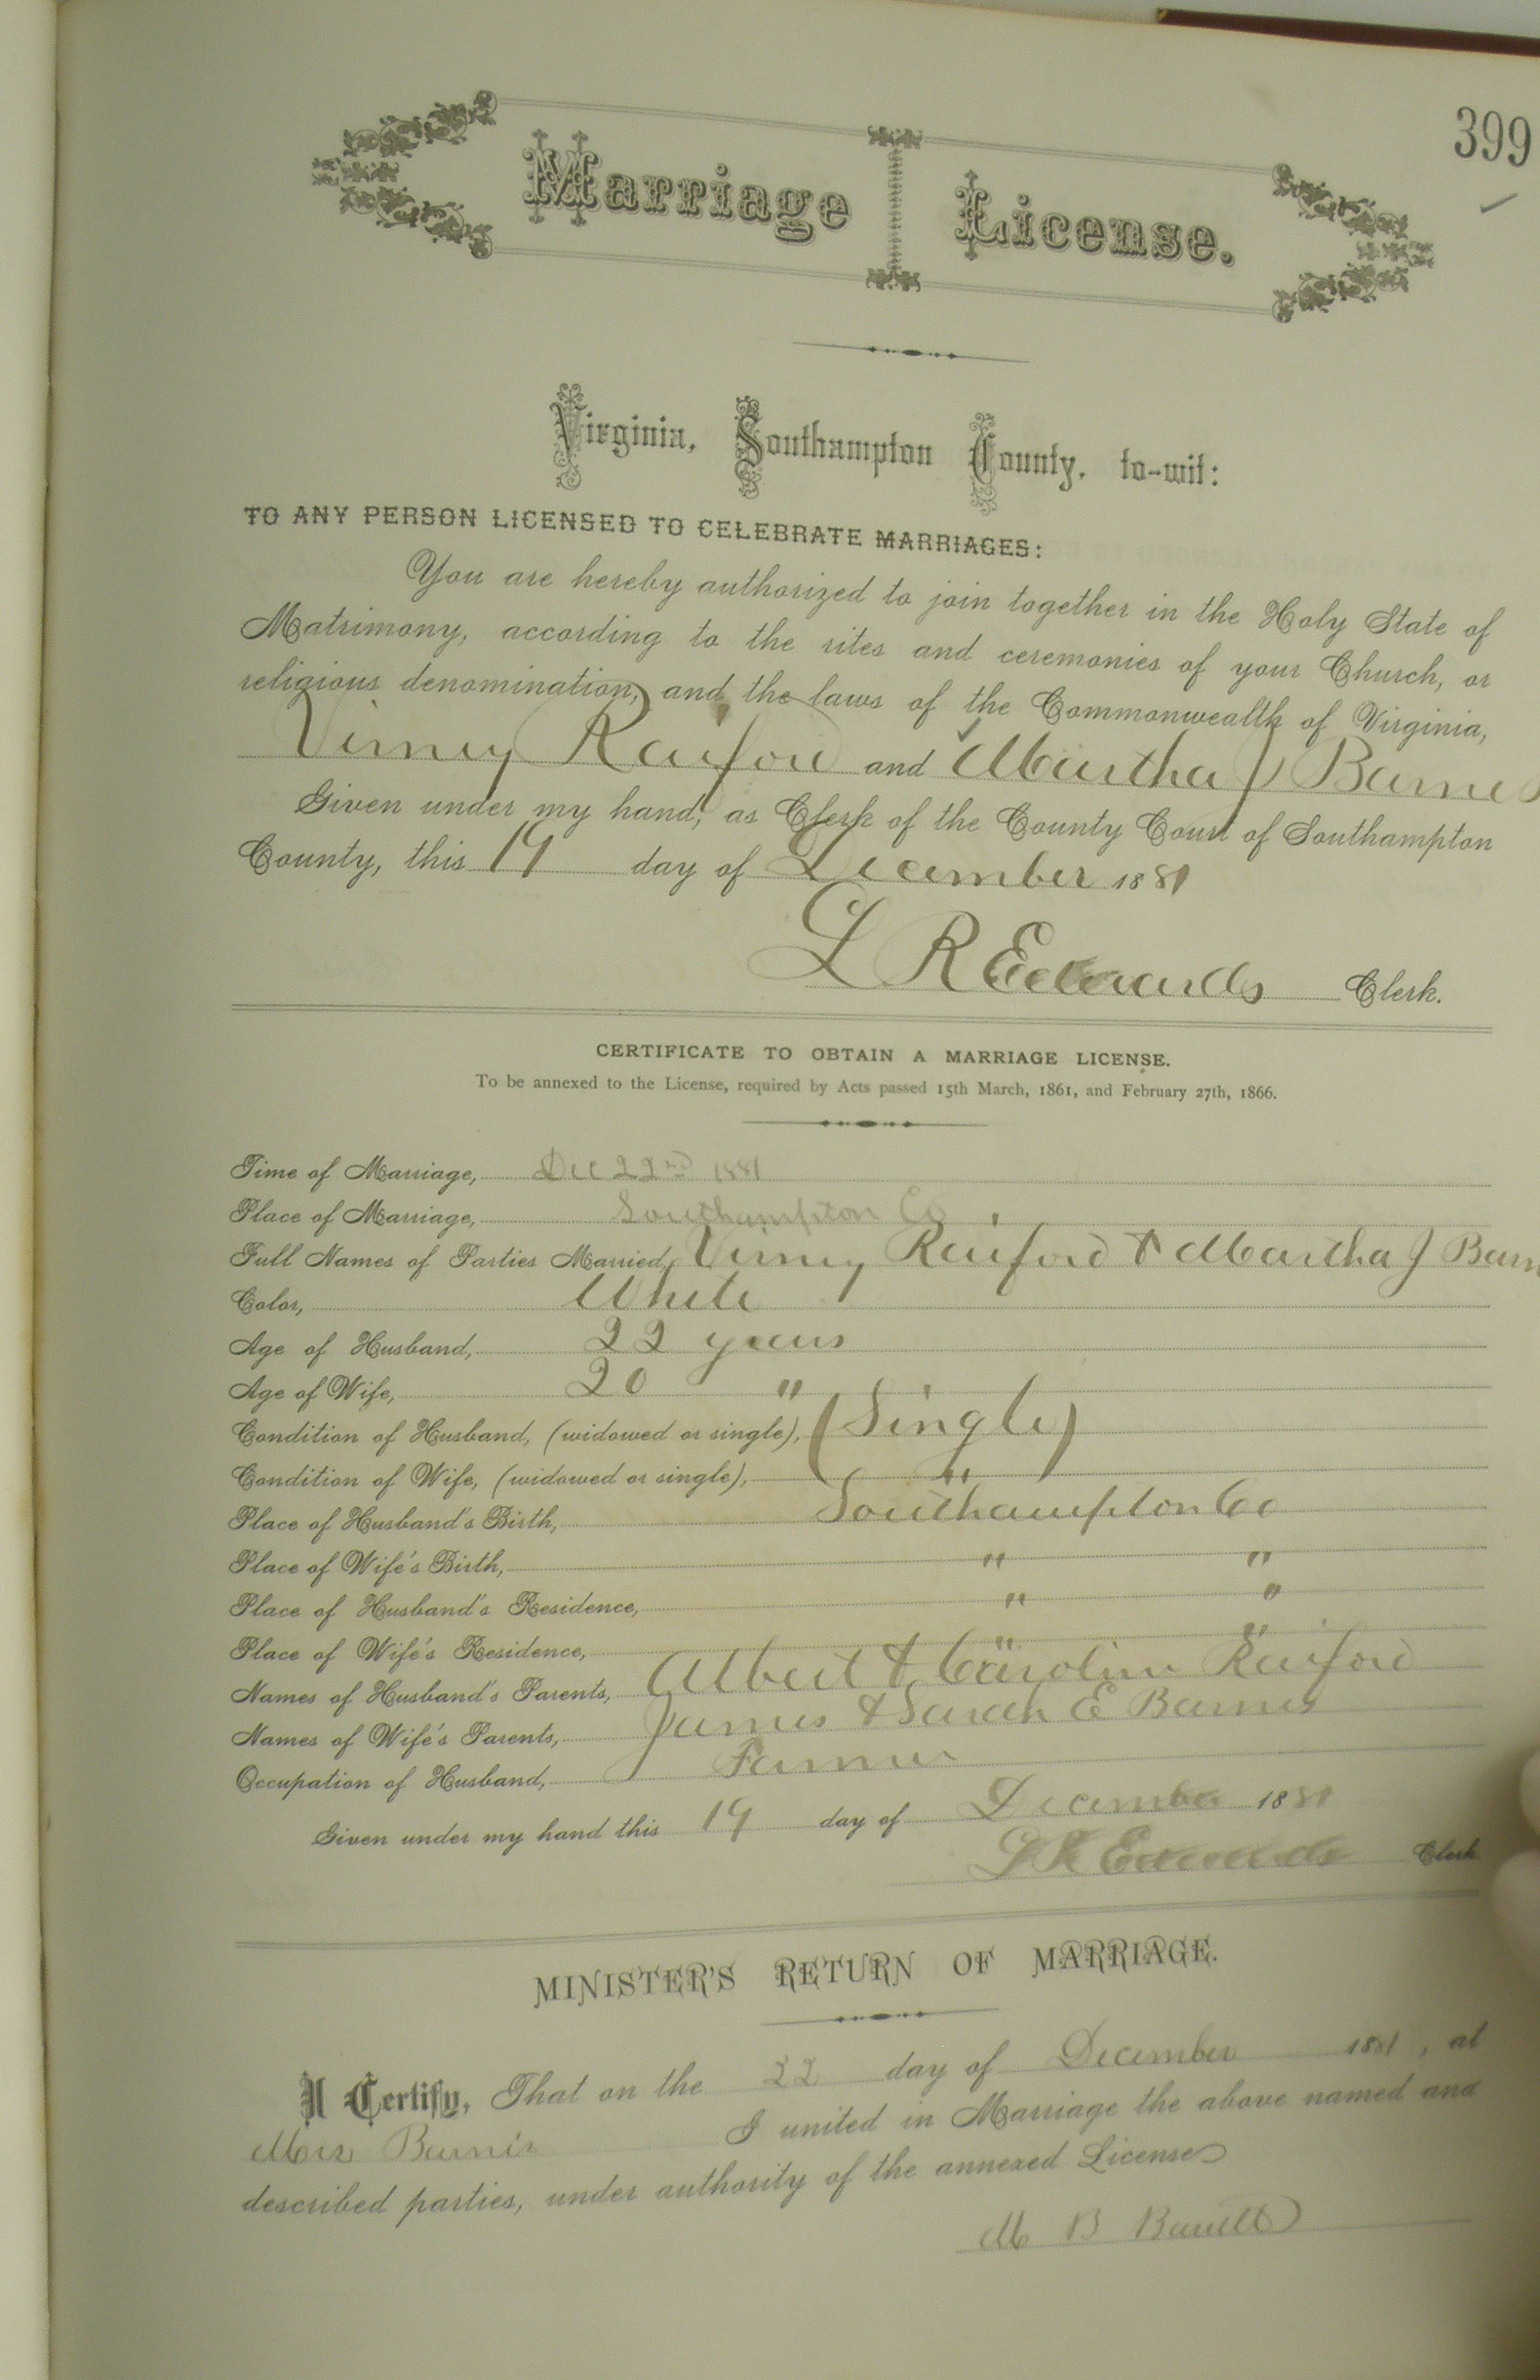 399
Marriage License.
Virginia, Southampton County, to-wit:
TO ANY PERSON LICENSED TO CELEBRATE MARRIAGES:
You are hereby authorized to join together in the Holy State of
Matrimony, according to the rites and ceremonies of your Church, or
religious denomination, and the laws of the Commonwealth of Virginia,
Raiford and Martha J Barnes
Given under my hand, as Clerk of the County Court of Southampton
County, this 19 day of December 1881
L R Edwards Clerk.
CERTIFICATE TO OBTAIN A MARRIAGE LICENSE.
To be annexed to the License, required by Acts passed 15th March, 1861, and February 27th, 1866.
Time of Marriage, Dec 22nd 1881
Place of Marriage, Southampton Co
Full Names of Parties Married, Raiford & Martha J Barn
Color, White
Age of Husband, 22 years
Age of Wife, 20 "
Condition of Husband, (widowed or single), (Single)
Condition of Wife, (widowed or single), "
Place of Husband's Birth, Southampton Co
Place of Wife's Birth, " "
Place of Husband's Residence, " "
Place of Wife's Residence, " "
Names of Husband's Parents, Albert & Caroline Raiford
Names of Wife's Parents, James & Sarah E Barnes
Occupation of Husband, Farmer
Given under my hand this 19 day of December 1881
L R Edwards Clerk
MINISTER'S RETURN OF MARRIAGE.
I Certify, That on the 22 day of December 1881, at
Barnes I united in Marriage the above named and
described parties, under authority of the annexed License
M B Barrett